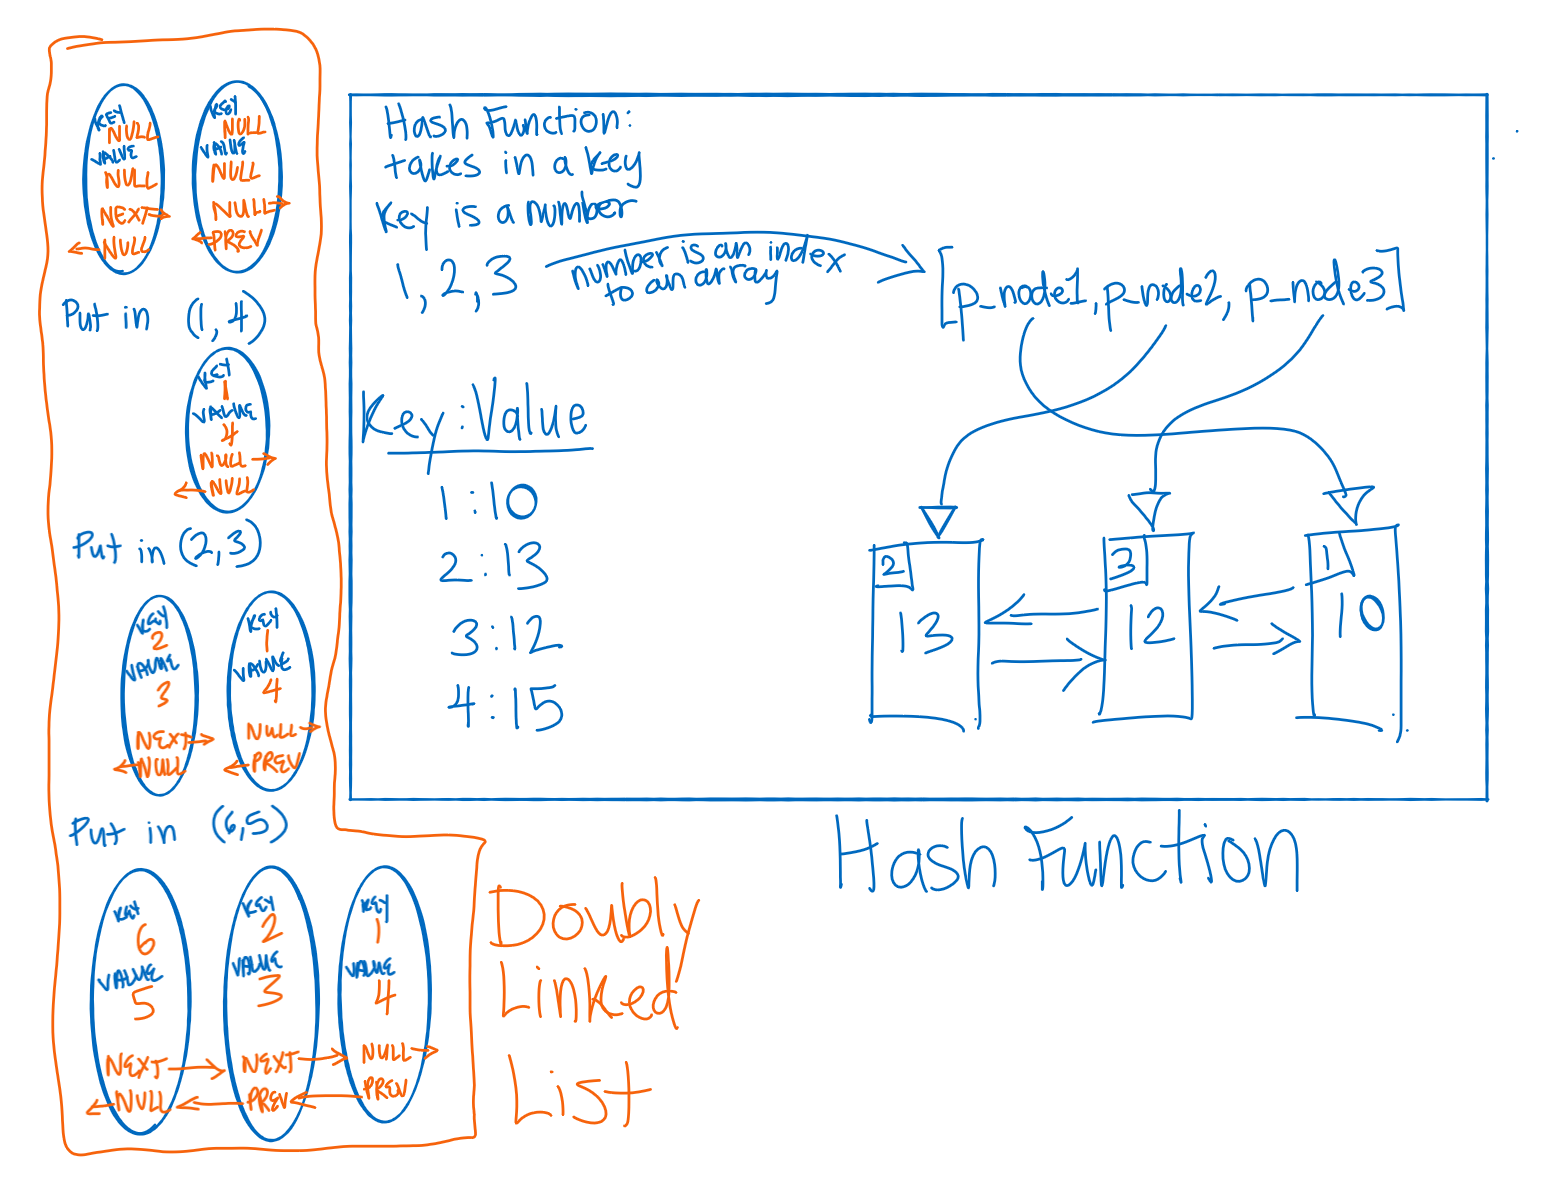 KEY
NULL
VALUE
NULL
NEXT
NULL
KEY
NULL
VALUE
NULL
NULL
PREV
Put in (1,4)
KEY
1
VALUE
4
NULL
NULL
Put in (2,3)
KEY
2
VALUE
3
NEXT
NULL
KEY
1
VALUE
4
NULL
PREV
Put in (6,5)
KEY
6
VALUE
5
NEXT
NULL
KEY
2
VALUE
3
NEXT
PREV
KEY
1
VALUE
4
NULL
PREV
Doubly
Linked
List
Hash Function:
takes in a key
Key is a number
1,2,3
number is an index
to an array
[p_node1,p_node2, p_node3]
Key:Value
1:10
2:13
3:12
4:15
2
13
3
12
1
10
Hash Function